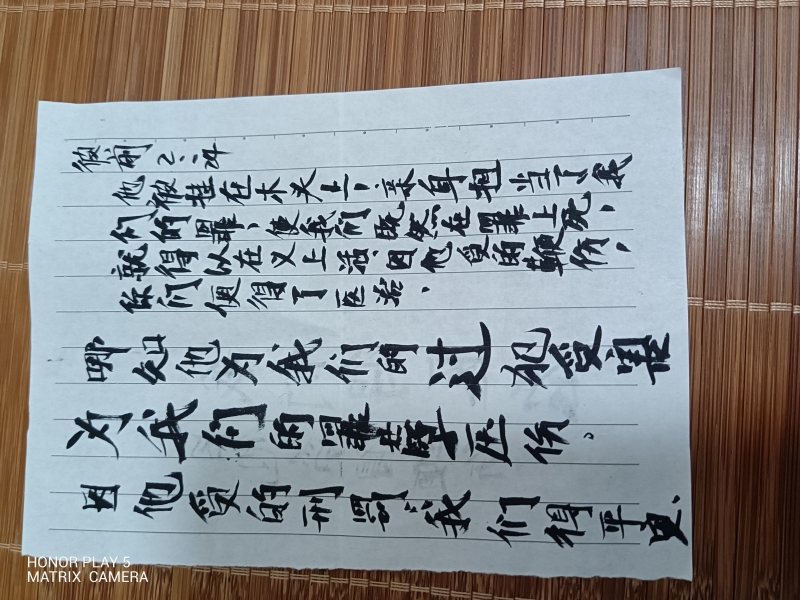 彼前 2:24
他被挂在木头上，亲身担当了我
们的罪，使我们既然在罪上死，
就得以在义上活，因他受的鞭伤，
你们便得了医治，
哪知他为我们的过犯受害
为我们的罪孽压伤。
因他受的刑罚我们得平
HONOR PLAY 5
MATRIX CAMERA